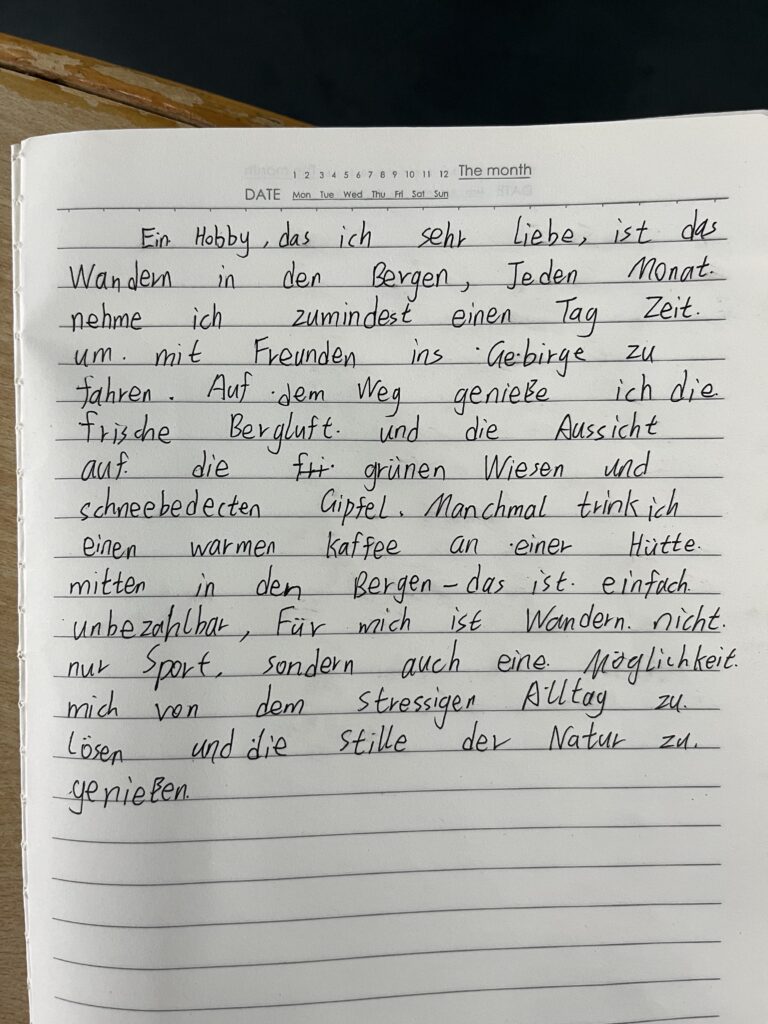 1 2 3 4 5 6 7 8 9 10 11 12 The month
DATE Mon Tue Wed Thu Fri Sat Sun
Ein Hobby, das ich sehr liebe, ist das
Wandern in den Bergen, Jeden Monat.
nehme ich zumindest einen Tag Zeit.
um. mit Freunden ins Gebirge zu
fahren. Auf dem Weg genieße ich die
frische Bergluft. und die Aussicht
auf. die fri. grünen Wiesen und
schneebedecten Gipfel. Manchmal trink ich
einen warmen kaffee an einer Hütte.
mitten in den Bergen – das ist. einfach
unbezahlbar, Für mich ist Wandern. nicht.
nur Sport, sondern auch eine. Möglichkeit.
mich von dem stressigen Alltag zu.
lösen und die stille der Natur zu.
genießen.